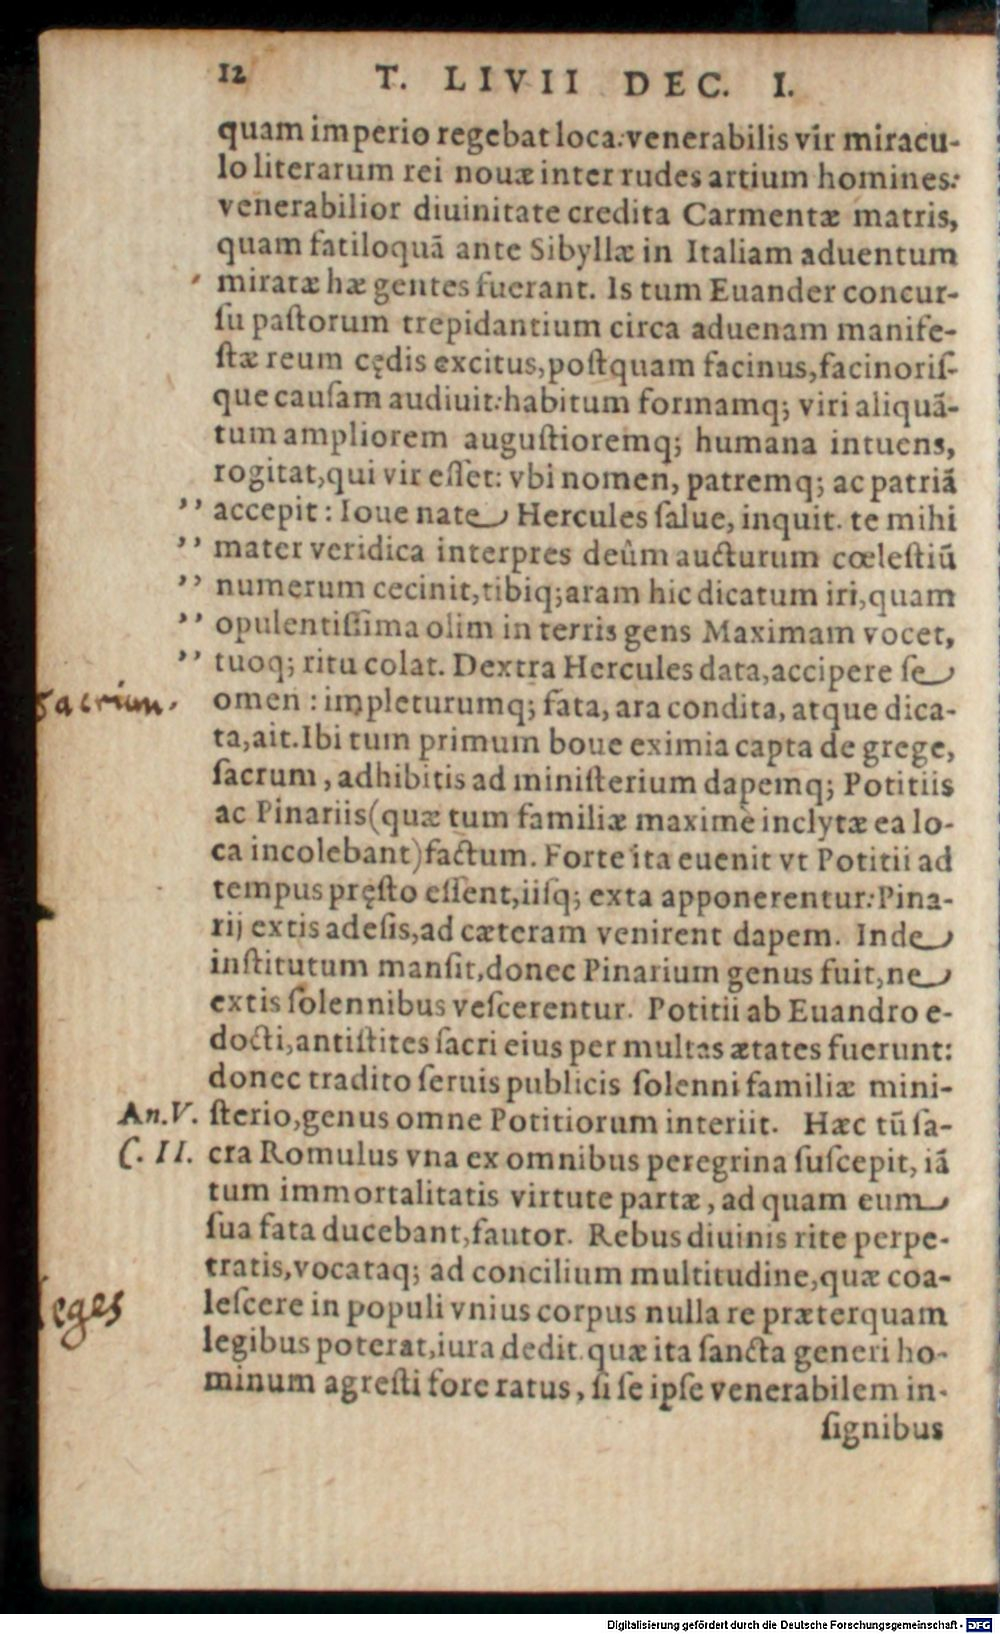 12 T. LIVII DEC. I.
quam imperio regebat loca: venerabilis vir miracu-
lo literarum rei nouæ inter rudes artium homines:
venerabilior diuinitate credita Carmentæ matris,
quam fatiloquā ante Sibyllæ in Italiam aduentum
miratæ hæ gentes fuerant. Is tum Euander concur-
ſu paſtorum trepidantium circa aduenam manife-
ſtæ reum cędis excitus, poſtquam facinus, facinoriſ-
que cauſam audiuit: habitum formamq; viri aliquā-
tum ampliorem auguſtioremq; humana intuens,
rogitat, qui vir eſſet: vbi nomen, patremq; ac patriā
” accepit: Ioue nate Hercules ſalue, inquit. te mihi
” mater veridica interpres deûm aucturum cœleſtiū
” numerum cecinit, tibiq; aram hic dicatum iri, quam
” opulentiſſima olim in terris gens Maximam vocet,
” tuoq; ritu colat. Dextra Hercules data, accipere ſe
sacrium.
omen: impleturumq; fata, ara condita, atque dica-
ta, ait. Ibi tum primum boue eximia capta de grege,
ſacrum, adhibitis ad miniſterium dapemq; Potitiis
ac Pinariis (quæ tum familiæ maximè inclytæ ea lo-
ca incolebant) factum. Forte ita euenit vt Potitii ad
tempus pręſto eſſent, iiſq; exta apponerentur: Pina-
rij extis adeſis, ad cæteram venirent dapem. Inde
inſtitutum manſit, donec Pinarium genus fuit, ne
extis ſolennibus veſcerentur. Potitii ab Euandro e-
docti, antiſtites ſacri eius per multas ætates fuerunt:
donec tradito ſeruis publicis ſolenni familiæ mini-
An. V. ſterio, genus omne Potitiorum interiit. Hæc tū ſa-
C. II. cra Romulus vna ex omnibus peregrina ſuſcepit, iā
tum immortalitatis virtute partæ, ad quam eum
ſua fata ducebant, fautor. Rebus diuinis rite perpe-
tratis, vocataq; ad concilium multitudine, quæ coa-
leges
leſcere in populi vnius corpus nulla re præterquam
legibus poterat, iura dedit. quæ ita ſancta generi ho-
minum agreſti fore ratus, ſi ſe ipſe venerabilem in-
ſignibus
Digitalisierung gefördert durch die Deutsche Forschungsgemeinschaft - DFG